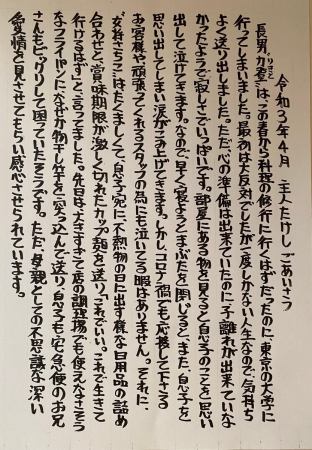 令和3年4月 主人たけし ごあいさつ
長男「力登」は、この春から料理の修行に行くはずだったのに、東京の大学に
りきと
行ってしまいました。最初は大反対でしたが一度しかない人生なので、気持ち
よく送り出しました。ただ心の準備は出来ていたのに子離れが出来ていな
かったようで寂しさでいっぱいです。部屋にある物を見ると息子のことを思い
出して泣けてきます。なので、早く寝ようとまぶたを閉じると、また、息子を
思い出してしまい涙がこみ上げてきます。しかし、コロナ禍でも応援して下さる
お客様や、頑張ってくれるスタッフの為にも泣いてる暇はありません。それに、
"女将さちこ"はたくましくて、息子宛に不燃物の日に出す様な日用品の詰め
合わせと、賞味期限が激しく切れたカップ麺を送り、「これでいい。これで生きて
行けるはず」と言ってました。先日は大きすぎて店の調理場でも使えなさそう
なフライパンに、なぜか物干し竿を突っ込んで送り、息子も宅急便のお兄
さんもビックリして困っていたそうです。ただ、母親としての不思議な深い
愛情を見させてもらい感心させられています。